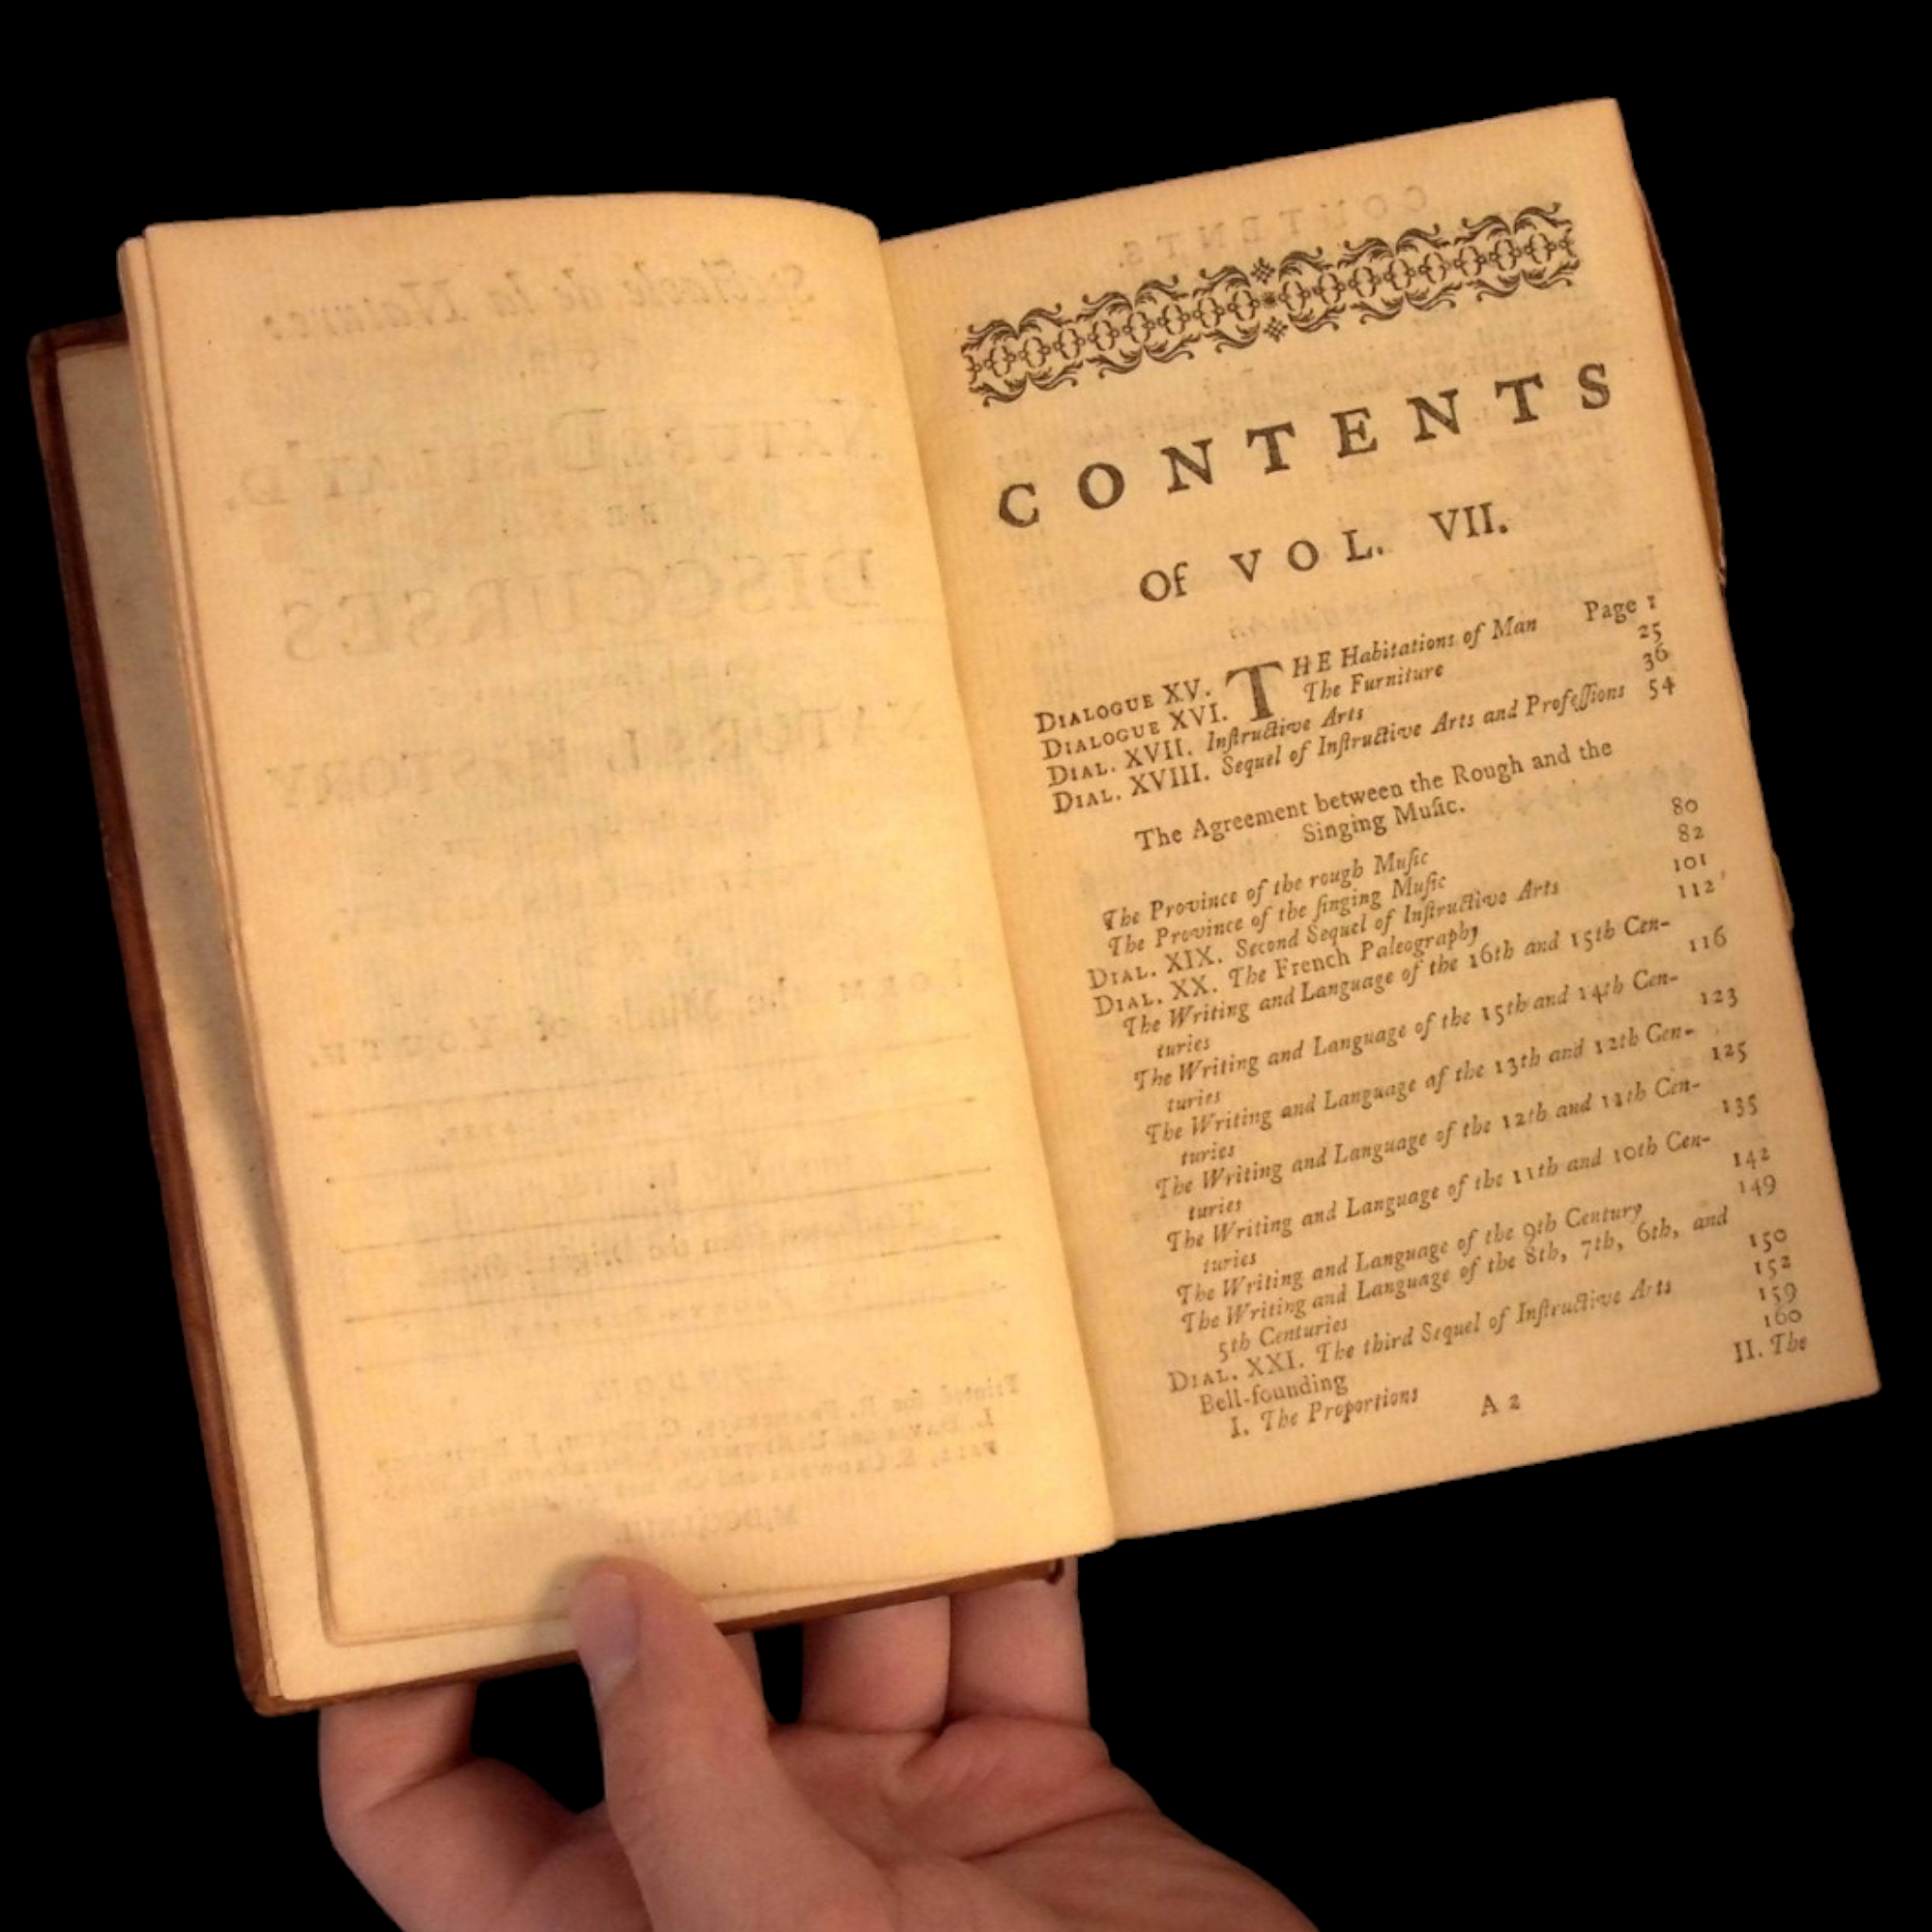 Spectacle de la Nature:
NATURE DISPLAY'D.
DISCOURSES
NATURAL HISTORY
FORM the Mind of YOUTH.
LONDON
CONTENTS
Of VOL. VII.
DIALOGUE XV. THE Habitations of Man Page 1
DIALOGUE XVI. The Furniture 25
DIAL. XVII. Inſtructive Arts 36
DIAL. XVIII. Sequel of Inſtructive Arts and Profeſſions 54
The Agreement between the Rough and the
Singing Muſic.
The Province of the rough Muſic 80
The Province of the ſinging Muſic 82
DIAL. XIX. Second Sequel of Inſtructive Arts 101
DIAL. XX. The French Paleography 112
The Writing and Language of the 16th and 15th Cen-
turies 116
The Writing and Language of the 15th and 14th Cen-
turies 123
The Writing and Language of the 13th and 12th Cen-
turies 125
The Writing and Language of the 12th and 11th Cen-
turies 135
The Writing and Language of the 11th and 10th Cen-
turies 142
The Writing and Language of the 9th Century 149
The Writing and Language of the 8th, 7th, 6th, and
5th Centuries 150
DIAL. XXI. The third Sequel of Inſtructive Arts 152
Bell-founding 159
I. The Proportions 160
A 2 II. The